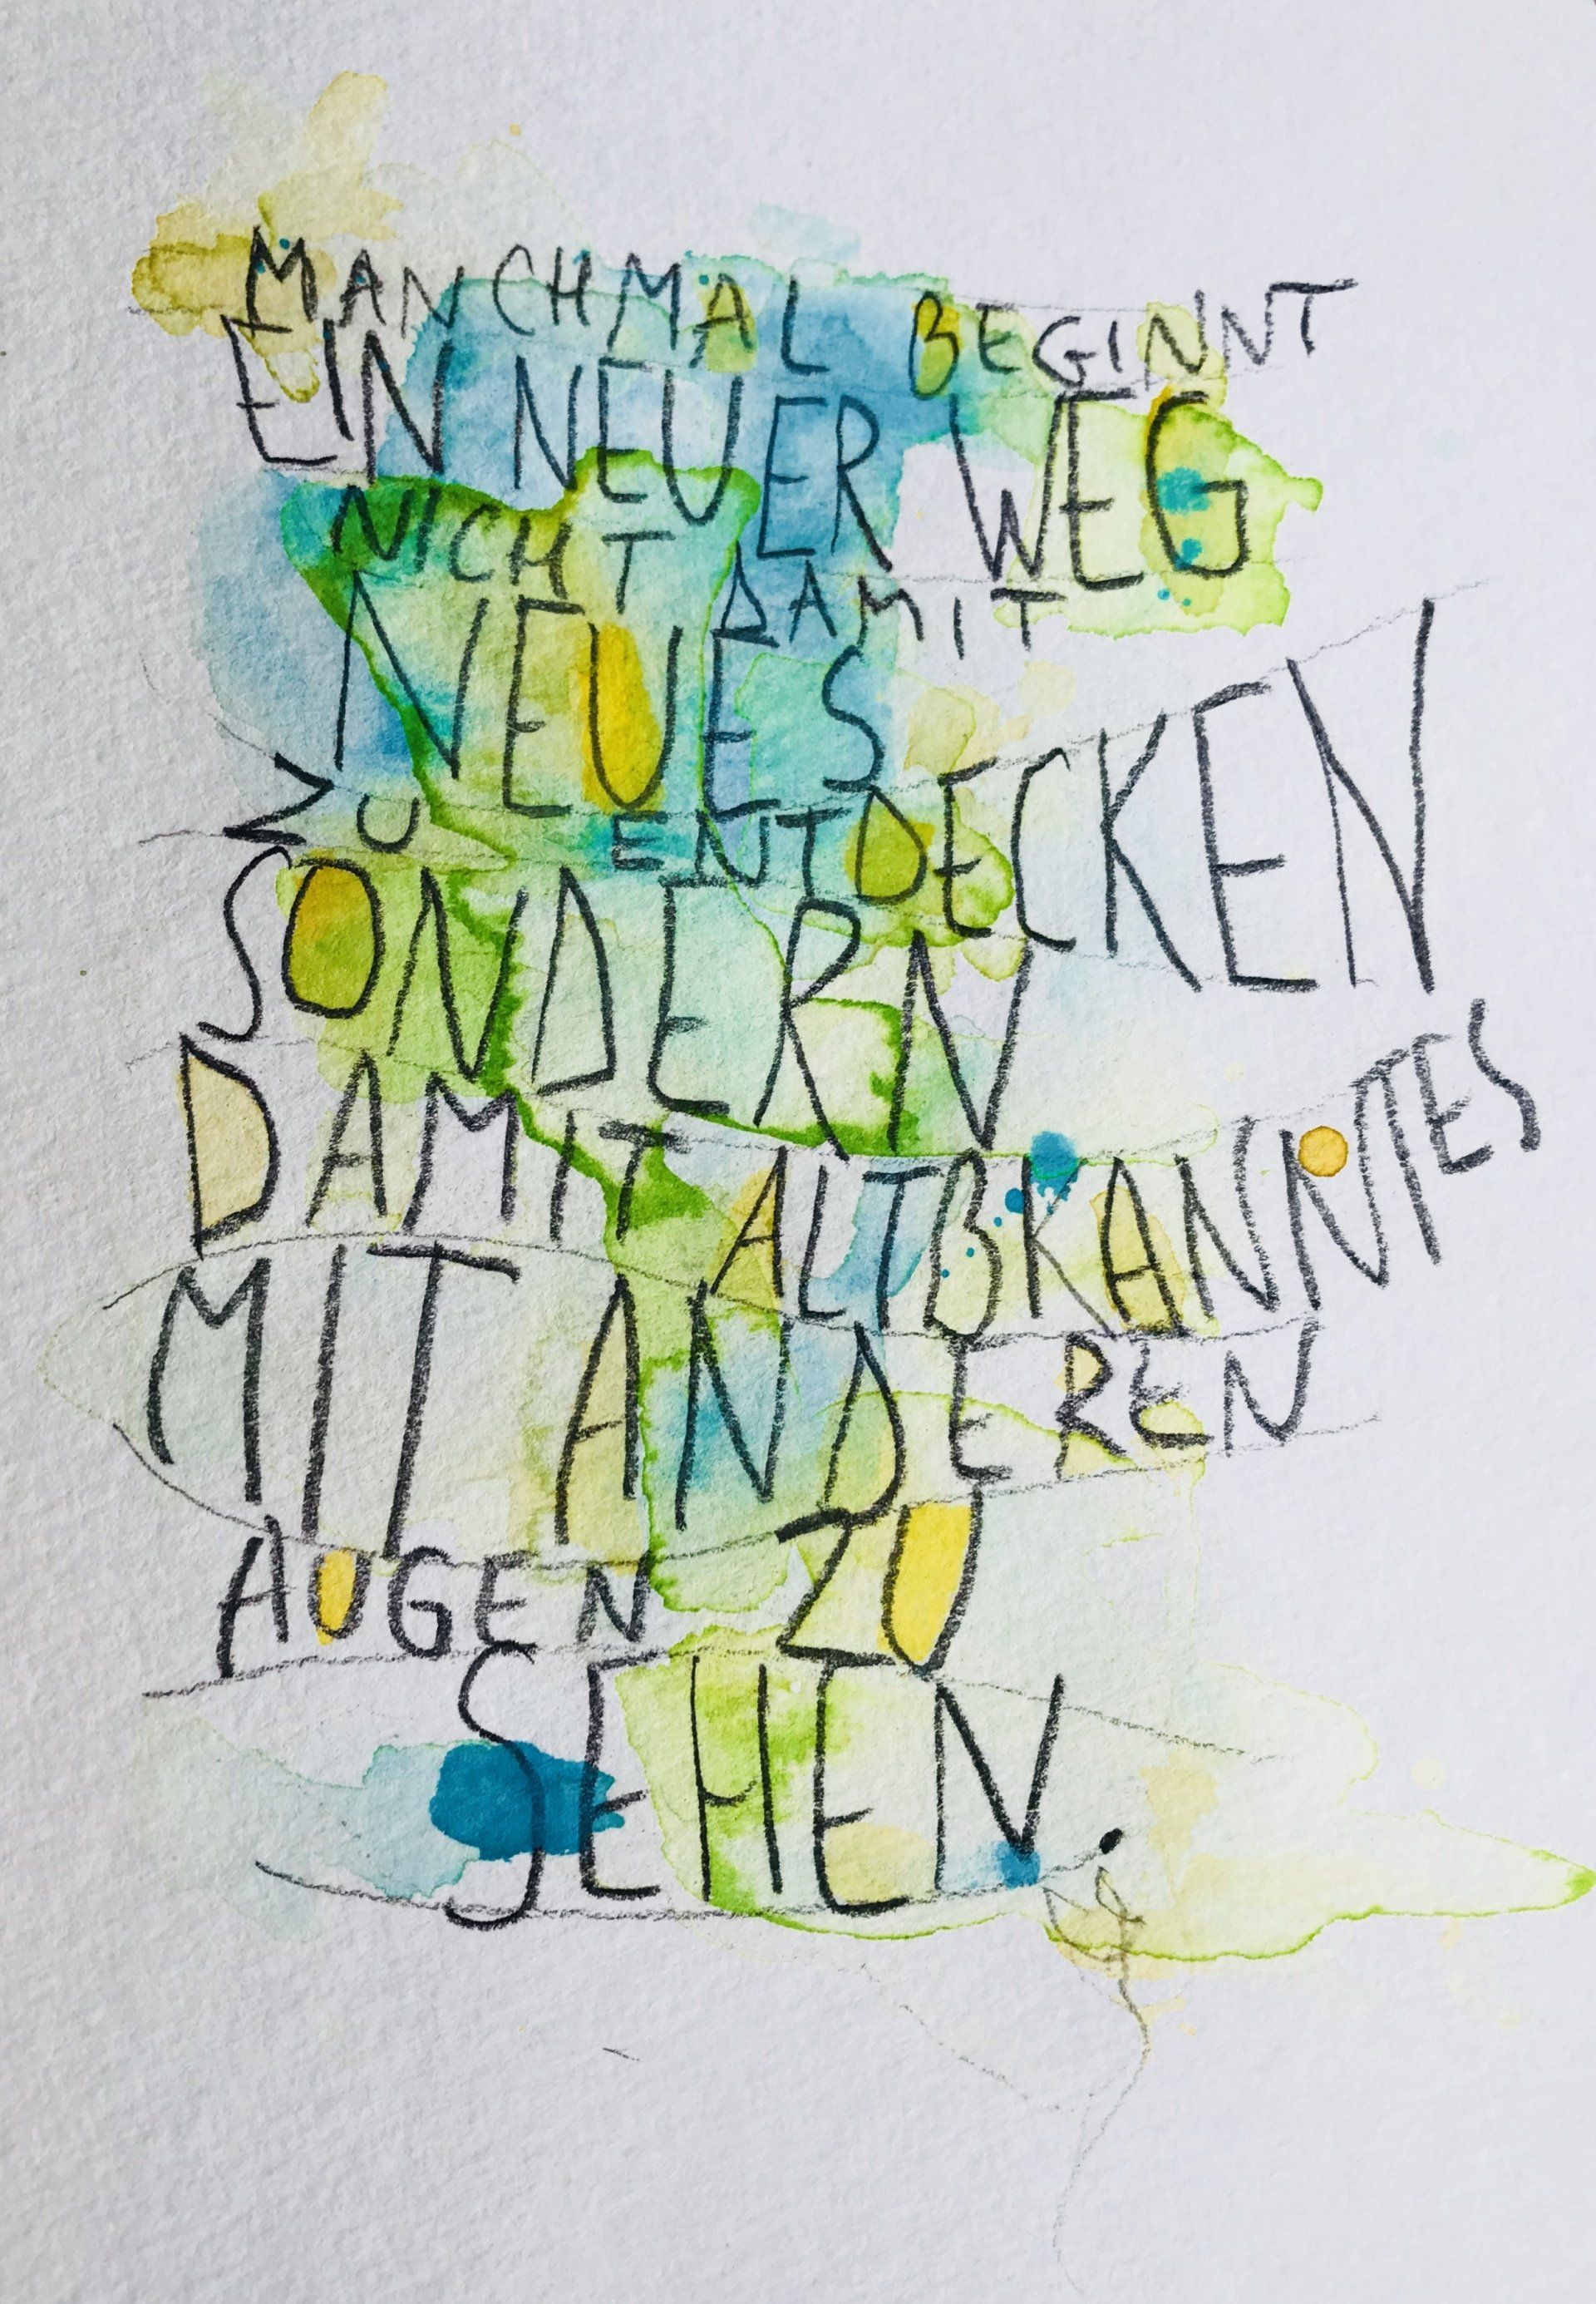 MANCHMAL BEGINNT
EIN NEUER WEG
NICHT DAMIT
NEUES
ZU ENTDECKEN
SONDERN
DAMIT ALTBKANNTES
MIT ANDEREN
AUGEN ZU
SEHEN.